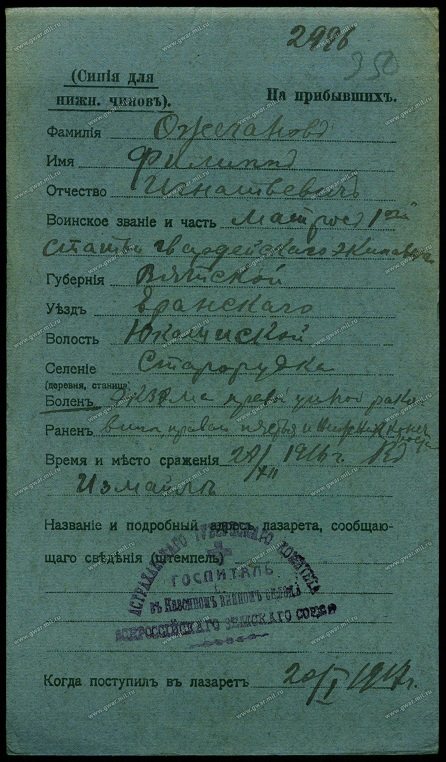 2996
350
(Синія для
нижн. чиновъ).
На прибывшихъ.
Фамилія Ожегановъ
Имя Филиппъ
Отчество Игнатьевичъ
Воинское званіе и часть Матросъ 1ой
статьи Гвардейскаго Экипажа
Губернія Вятской
Уѣздъ Яранскаго
Волость
Селеніе Старорудка
(деревня, станица)
Боленъ Экзема правой ушной рако
Раненъ вины, правой
Время и мѣсто сраженія 20/XII 1916 г.
Измаилъ
Названіе и подробный адресъ лазарета, сообщаю-
щаго свѣдѣнія (штемпель)
АСТРАХАНСКАГО ГУБЕРНСКАГО КОМИТЕТА
ГОСПИТАЛЬ
въ Казенномъ винномъ складѣ
ВСЕРОССІЙСКАГО ЗЕМСКАГО СОЮЗА
Когда поступилъ въ лазаретъ 20/I 1917 г.
www.gwar.mil.ru